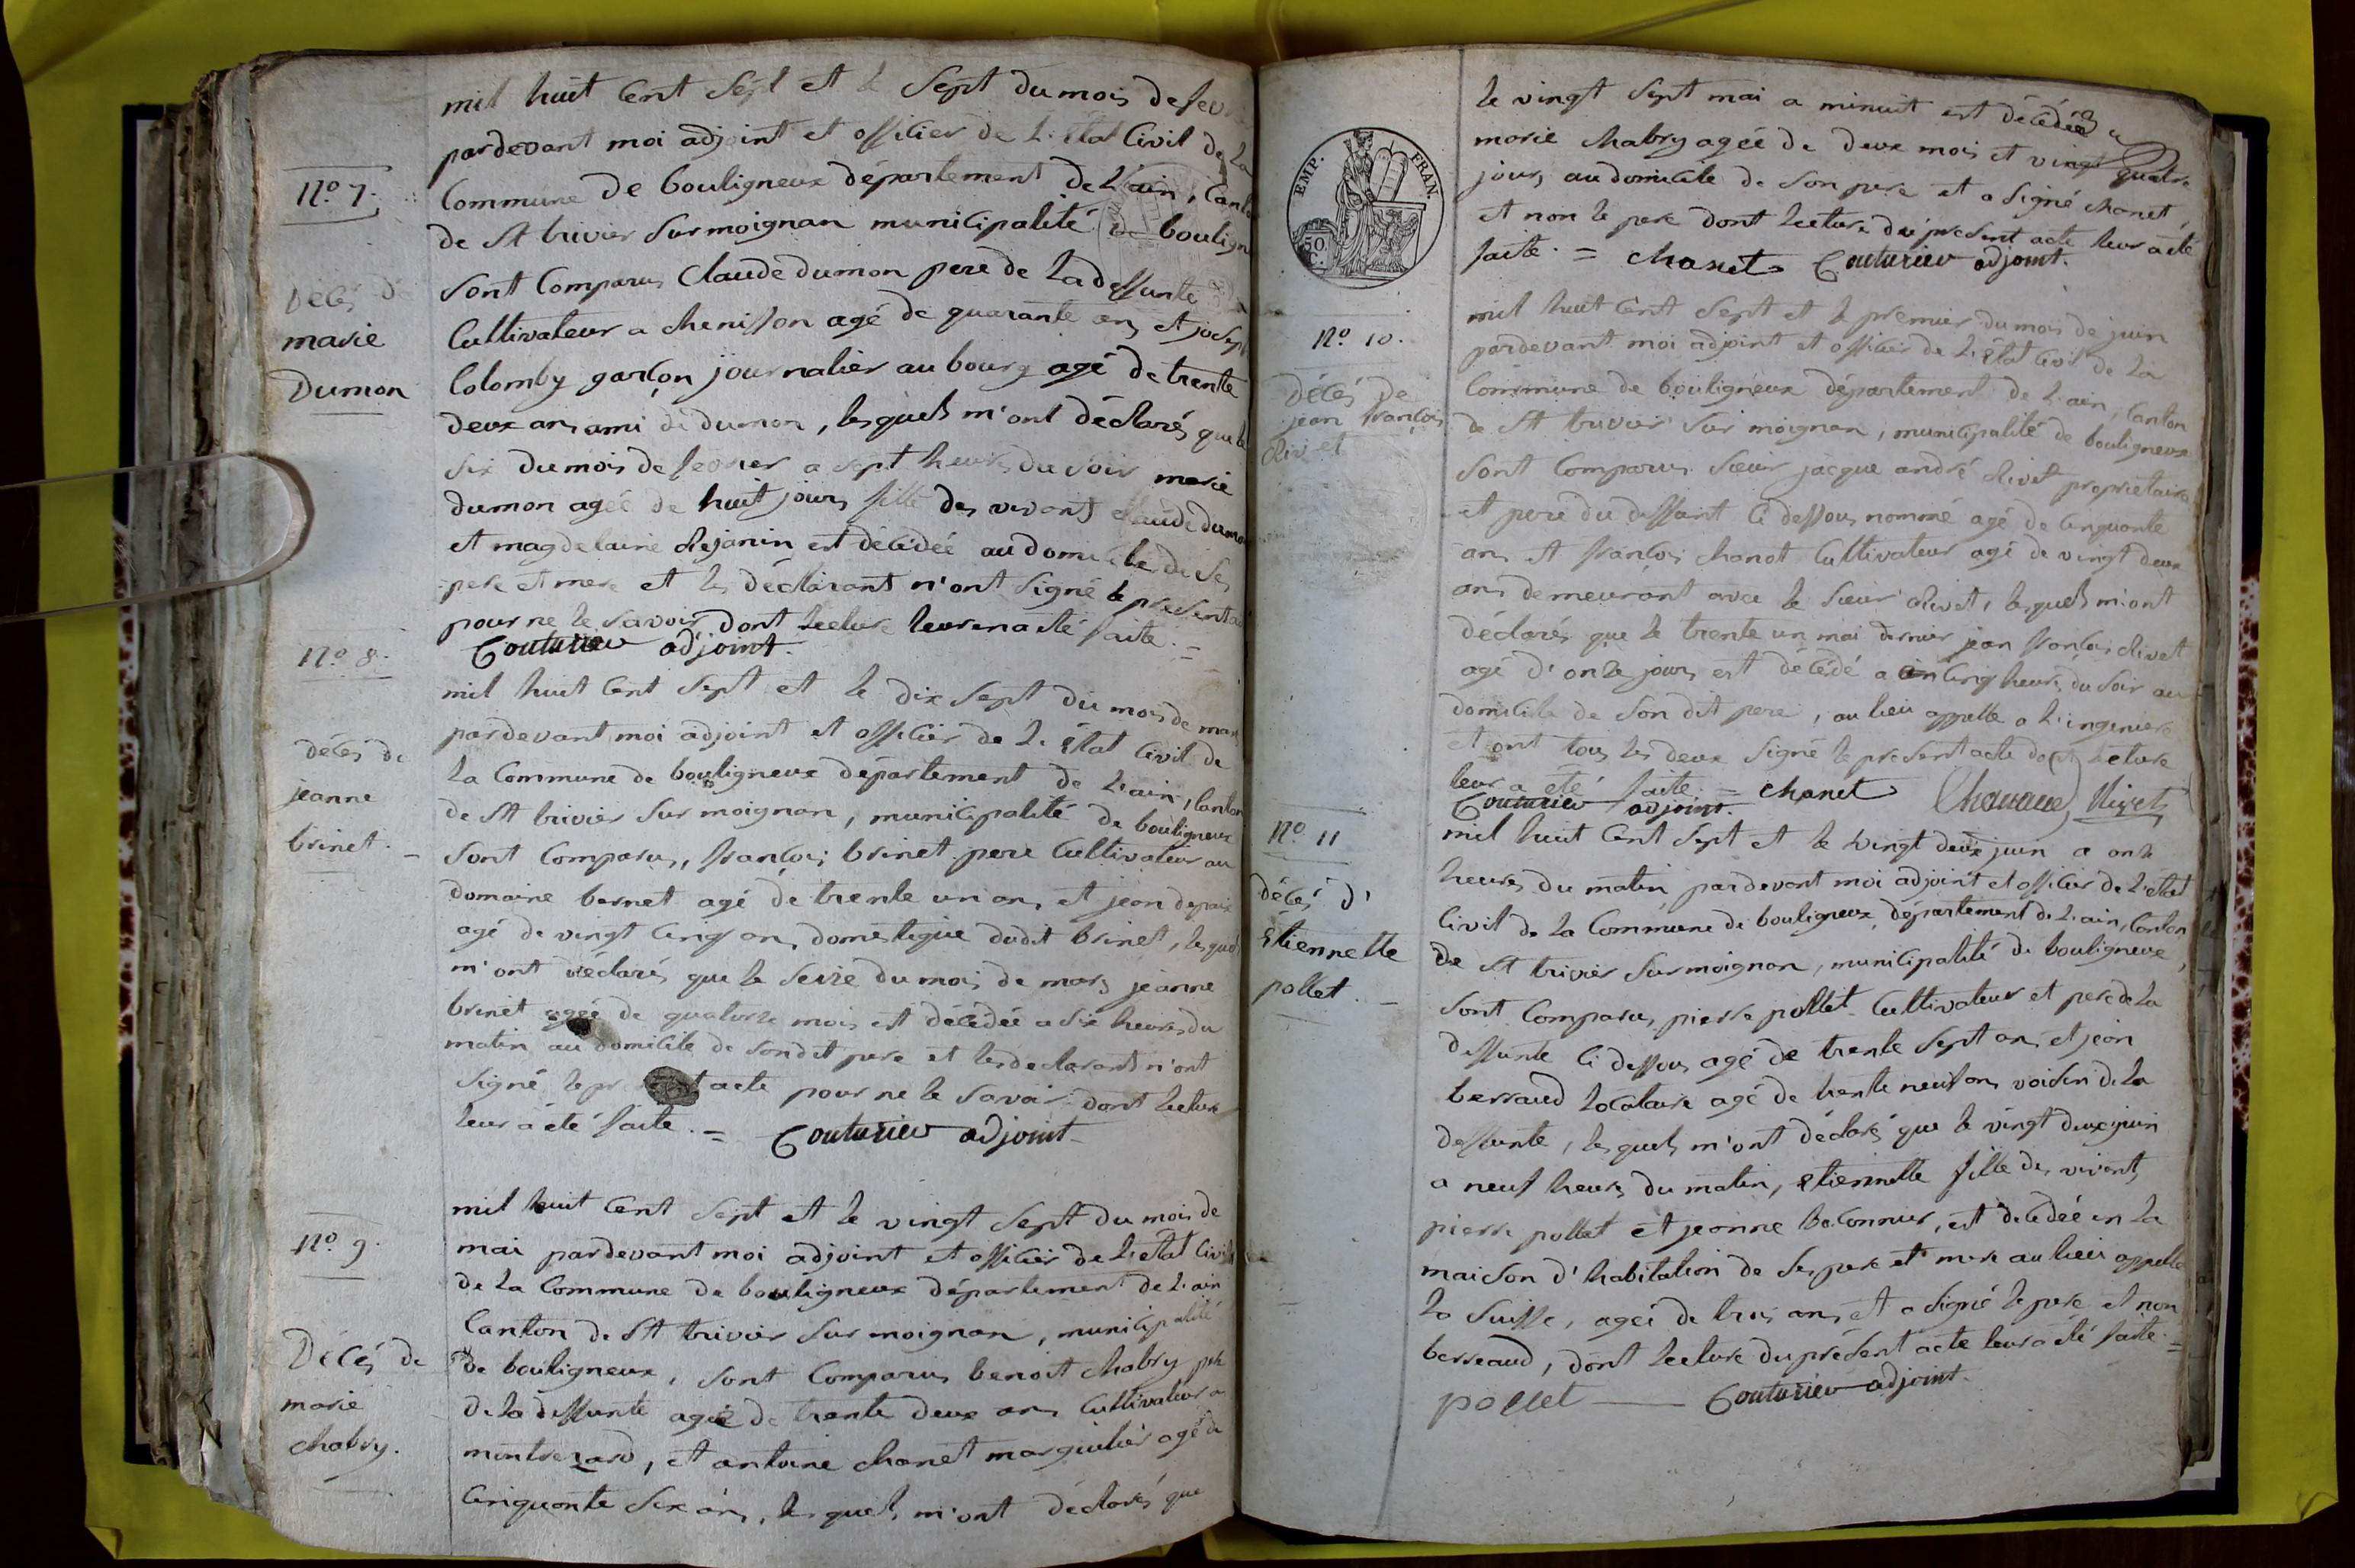 mil huit Cent Sept et le Sept du mois de fev
pardevant moi adjoint et officier de L'état Civil de La
N.o 7.
Commune de bouligneux département de L'ain, Canto
de St trivier Sur moignan municipalité de boulign
Sont Comparus Claude dumon pere de La deffunte
Décés d
marie
Dumon
Cultivateur a chenisson agé de quarante ans et joseph
Colomby garçon journalier au bourg agé de trente
deux ans ami de dumon, lesquels m'ont déclarés que le
Six du mois de fevrier a sept heures du soir marie
dumon agée de huit jours fille des vivants Claude dumon
et magdelaine dejanin est décédée au domicile de Ses
pere et mere et les déclarant n'ont Signé le présent a
pour ne le Savoir dont lecture leur en a été faite. =
Couturier adjoint.
N.o 8.
mil huit Cent Sept et le dix Sept du mois de mar
pardevant moi adjoint et officier de L'état Civil de
décés de
jeanne
brinet. _
La Commune de bouligneux département de L'ain, Canton
de St trivier Sur moignan, municipalité de bouligneux
Sont Comparus, françois brinet pere Cultivateur au
domaine bernet agé de trente un ans et jean depaix
agé de vingt Cinq ans domestique dudit brinet, lesquels
m'ont déclarés que le Seize du mois de mars jeanne
brinet agée de quatorze mois est décédée a Six heures du
matin au domicile de Sondit pere et les déclarants n'ont
Signé le present acte pour ne le Savoir dont lecture
leur a été faite. = Couturier adjoint
mil huit Cent Sept et le vingt Sept du mois de
N.o 9.
mai pardevant moi adjoint et officier de L'état Civil
de La Commune de bouligneux département de L'ain
Canton de St trivier Sur moignan, municipalité
Décés de
marie
chabry.
de bouligneux, Sont Comparus benoit chabry pere
de La deffunte agée de trente deux ans Cultivateur a
montrezard, et antoine chanet marguilier agé de
Cinquante Six ans, lesquels m'ont déclarés que
EMP. FRAN.
50 C.
le vingt Sept mai a minuit est décédée
marie chabry agée de deux mois et vingt quatre
jours au domicile de Son pere et a Signé chanet
et non le pere dont lecture du présent acte leur a été
faite. = chanet Couturier adjoint.
N.o 10.
mil huit Cent Sept et le premier du mois de juin
pardevant moi adjoint et officier de L'état Civil de La
Décés de
jean françois
olivet
Commune de bouligneux département de L'ain, Canton
de St trivier Sur moignan, municipalité de bouligneux
Sont Comparus Sieur jacque andré olivet propriétaire
et pere du deffunt Ci dessous nommé agé de Cinquante
ans et françois chanot Cultivateur agé de vingt deux
ans demeurant avec le Sieur olivet, lesquels m'ont
déclarés que le trente un mai dernier jean françois olivet
agé d'onze jours est décédé a Cinq heures du Soir au
domicile de Son dit pere, au lieu appellé a L'ingeniere
et ont tous les deux Signé le présent acte dont lecture
leur a été faite. = chanet Olivet
Couturier adjoint.
N.o 11
mil huit Cent Sept et le vingt deux juin a onze
heures du matin pardevant moi adjoint et officier de L'état
décés d'
étiennette
pollet. _
Civil de La Commune de bouligneux, département de L'ain, Canton
de St trivier Sur moignan, municipalité de bouligneux,
Sont Comparus, pierre pollet Cultivateur et pere de La
deffunte Ci dessous agé de trente Sept ans et jean
berraud Locataire agé de trente neuf ans voisin de La
deffunte, lesquels m'ont déclarés que le vingt deux juin
a neuf heures du matin, etiennette fille des vivants
pierre pollet et jeanne baconnier, est décédée en La
maison d'habitation de Ses pere et mere au lieu appellé
La Suisse, agée de trois ans et a Signé le pere et non
berreaud, dont lecture du présent acte leur a été faite. =
pollet —— Couturier adjoint.